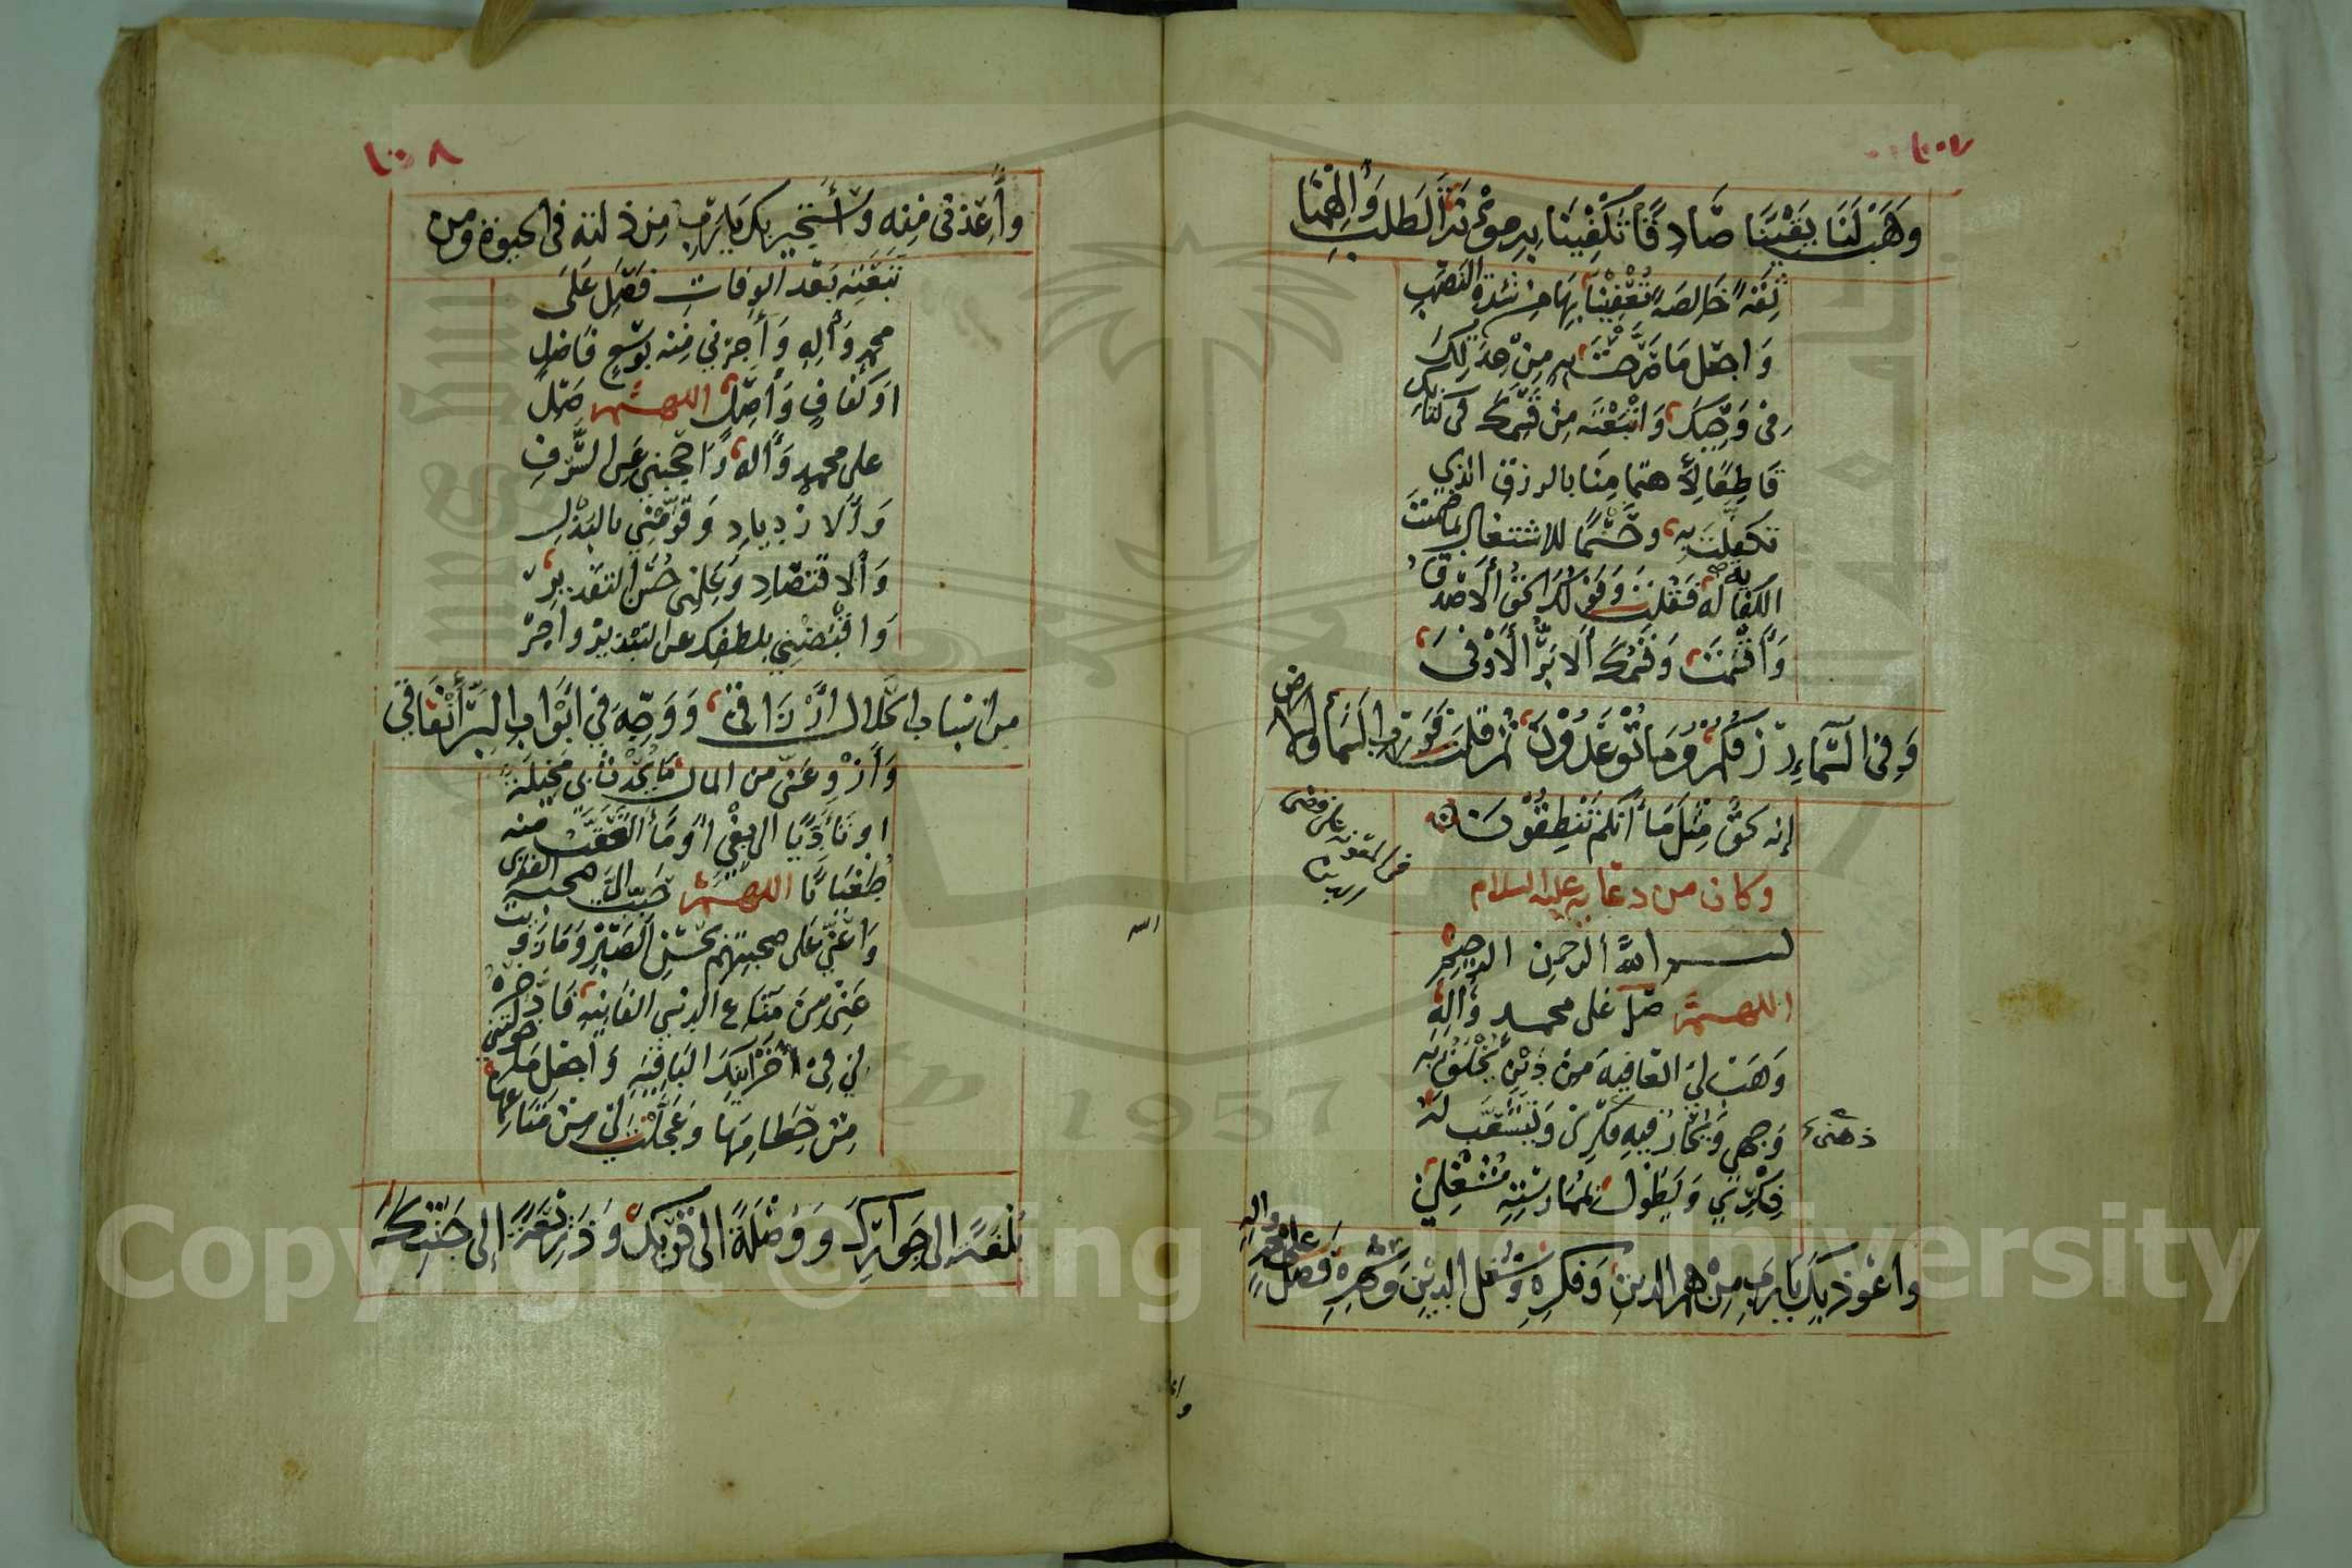 ١٠٧
وَهَبْ لَنَا يَقِيْنًا صَّادِقًا تَكْفِيْنَا بِهِ مؤْنَةَ الطَلَبِ وَأَلْهِمْنَا
ثِقَةً خَالِصَةً تُعْفِيْنَا بِهَا مِنْ شِدَّةِ النَصَبِ
وَاجعَل مَا صَرَّحْتَ بِهِ مِنْ عِدَتِكَ
فى وَحْيِكَ وَاتْبَعْتَه مِنْ قَسَمِكَ فى كتَابِكَ
قَاطِعًا لِأهتمَامِنَا بالرزق الذي
تكفلت بِهِ وحَسْمًا للاشتغال بما ضمنتَ
الكفاله له فَقُلتَ وَقَولُكَ الحَقُّ أَلأصْدَقُ
وَأَقْسَمْتَ وَقَسَمُكَ ألابَرُّ أَلأَوْفَى
وَفِى السَّمَاءِ رِزْقُكُمْ وَمَا تُوْعَدُوْنَ ثُمَّ قلتَ فَوَرَبِّ السَمَاء والأرض
إنه لحَقٌّ مِثْلَ مَا أَنَّكُمْ تَنْطِقُوْنَ
وكان من دعَائِه عليه السلام
بسم اللهِ الرحمنِ الرحِيْمِ
اللهـمَّ صَلِّ عَلى محمد وَآلِهِ
وَهَبْ لِيَ العَافِيَةَ مِنْ دَيْنٍ يَخْلَقُ بِه
وَجهى وَيَحَارُ فِيهِ فِكْرِى وَيَتَشَعَّب لَهُ
ذهنى
فِكْرِي وَيَطُول بِمُمَارسَتِهِ شُغْلِيْ
وأعُوْذ بِكَ يَا رَبِّ مِنْ هَمِّ الدين وَفكرِهِ وَشُغلِ الديْنِ وَسَهَرِهِ فَصَلِّ
على محمد واله
١٠٨
وأَعِذْنى مِنْهِ وأَسْتَجِيْر بِكَ يَا رَبِّ مِنْ ذلته فى الحيوة ومن
تَبِعَتِه بَعْدَ الوفات فَصَلِّ عَلَى
محمدٍ وَآلِهِ وَأَجِرْنِي مِنْه بِوُسْعٍ فَاضلٍ
اوَ كَفَافٍ وَاصِلٍ اللهـمَّ صَلِّ
على محمدٍ وَآله وَاحْجُبْنِى عَن السَّرَفِ
وَألازْدِيادِ وَقَوِّمْنِي بالبَذْلِ
وَألاقْتصَادِ وَعَلِّمْنِى حُسْنَ التقديرِ
وَاقْبِضْنِي بلطفِكَ عن التبْذير وأجْرِ
مِن اسْبَاب الحَلالِ أَرْزَاقِيْ وَوَجِّه فِي أبْوَابِ البِرِّ أنْفَاقِي
وَأزْوِ عَنِّى من المال مَا يُحْدِثُ لى مَخِيْلَةً
اوتَأَدِّيًا الى بَغْيٍ أوْ مَا أتَعَقَّبُ منه
طُغْيَانًا اللهـمَّ حَبِّبْ إلَيَّ صحبة الفقراء
وَأَعِنِّي عَلى صحبتِهِمْ بحُسْنِ الصَبْرِ وَمَا زَوَيتَ
عَنِّىْ مِنْ مَتَاع الدنيا الفَانِيَه فَادَّخِرْهُ
لِي فِى خَزَائنِكَ البَاقِيَةِ وَاجعَلْ مَا خولتني
مِنْ حُطَامِهَا وَعَجَّلْتَ لى مِنْ مَتَاعِهَا
بُلْغَةً الى جَوَارِكَ وَوُصْلَةً الى قُرْبِكَ وَذَرِيْعَةً إلى جَنَّتِكَ
Copyright © King Saud University
1957